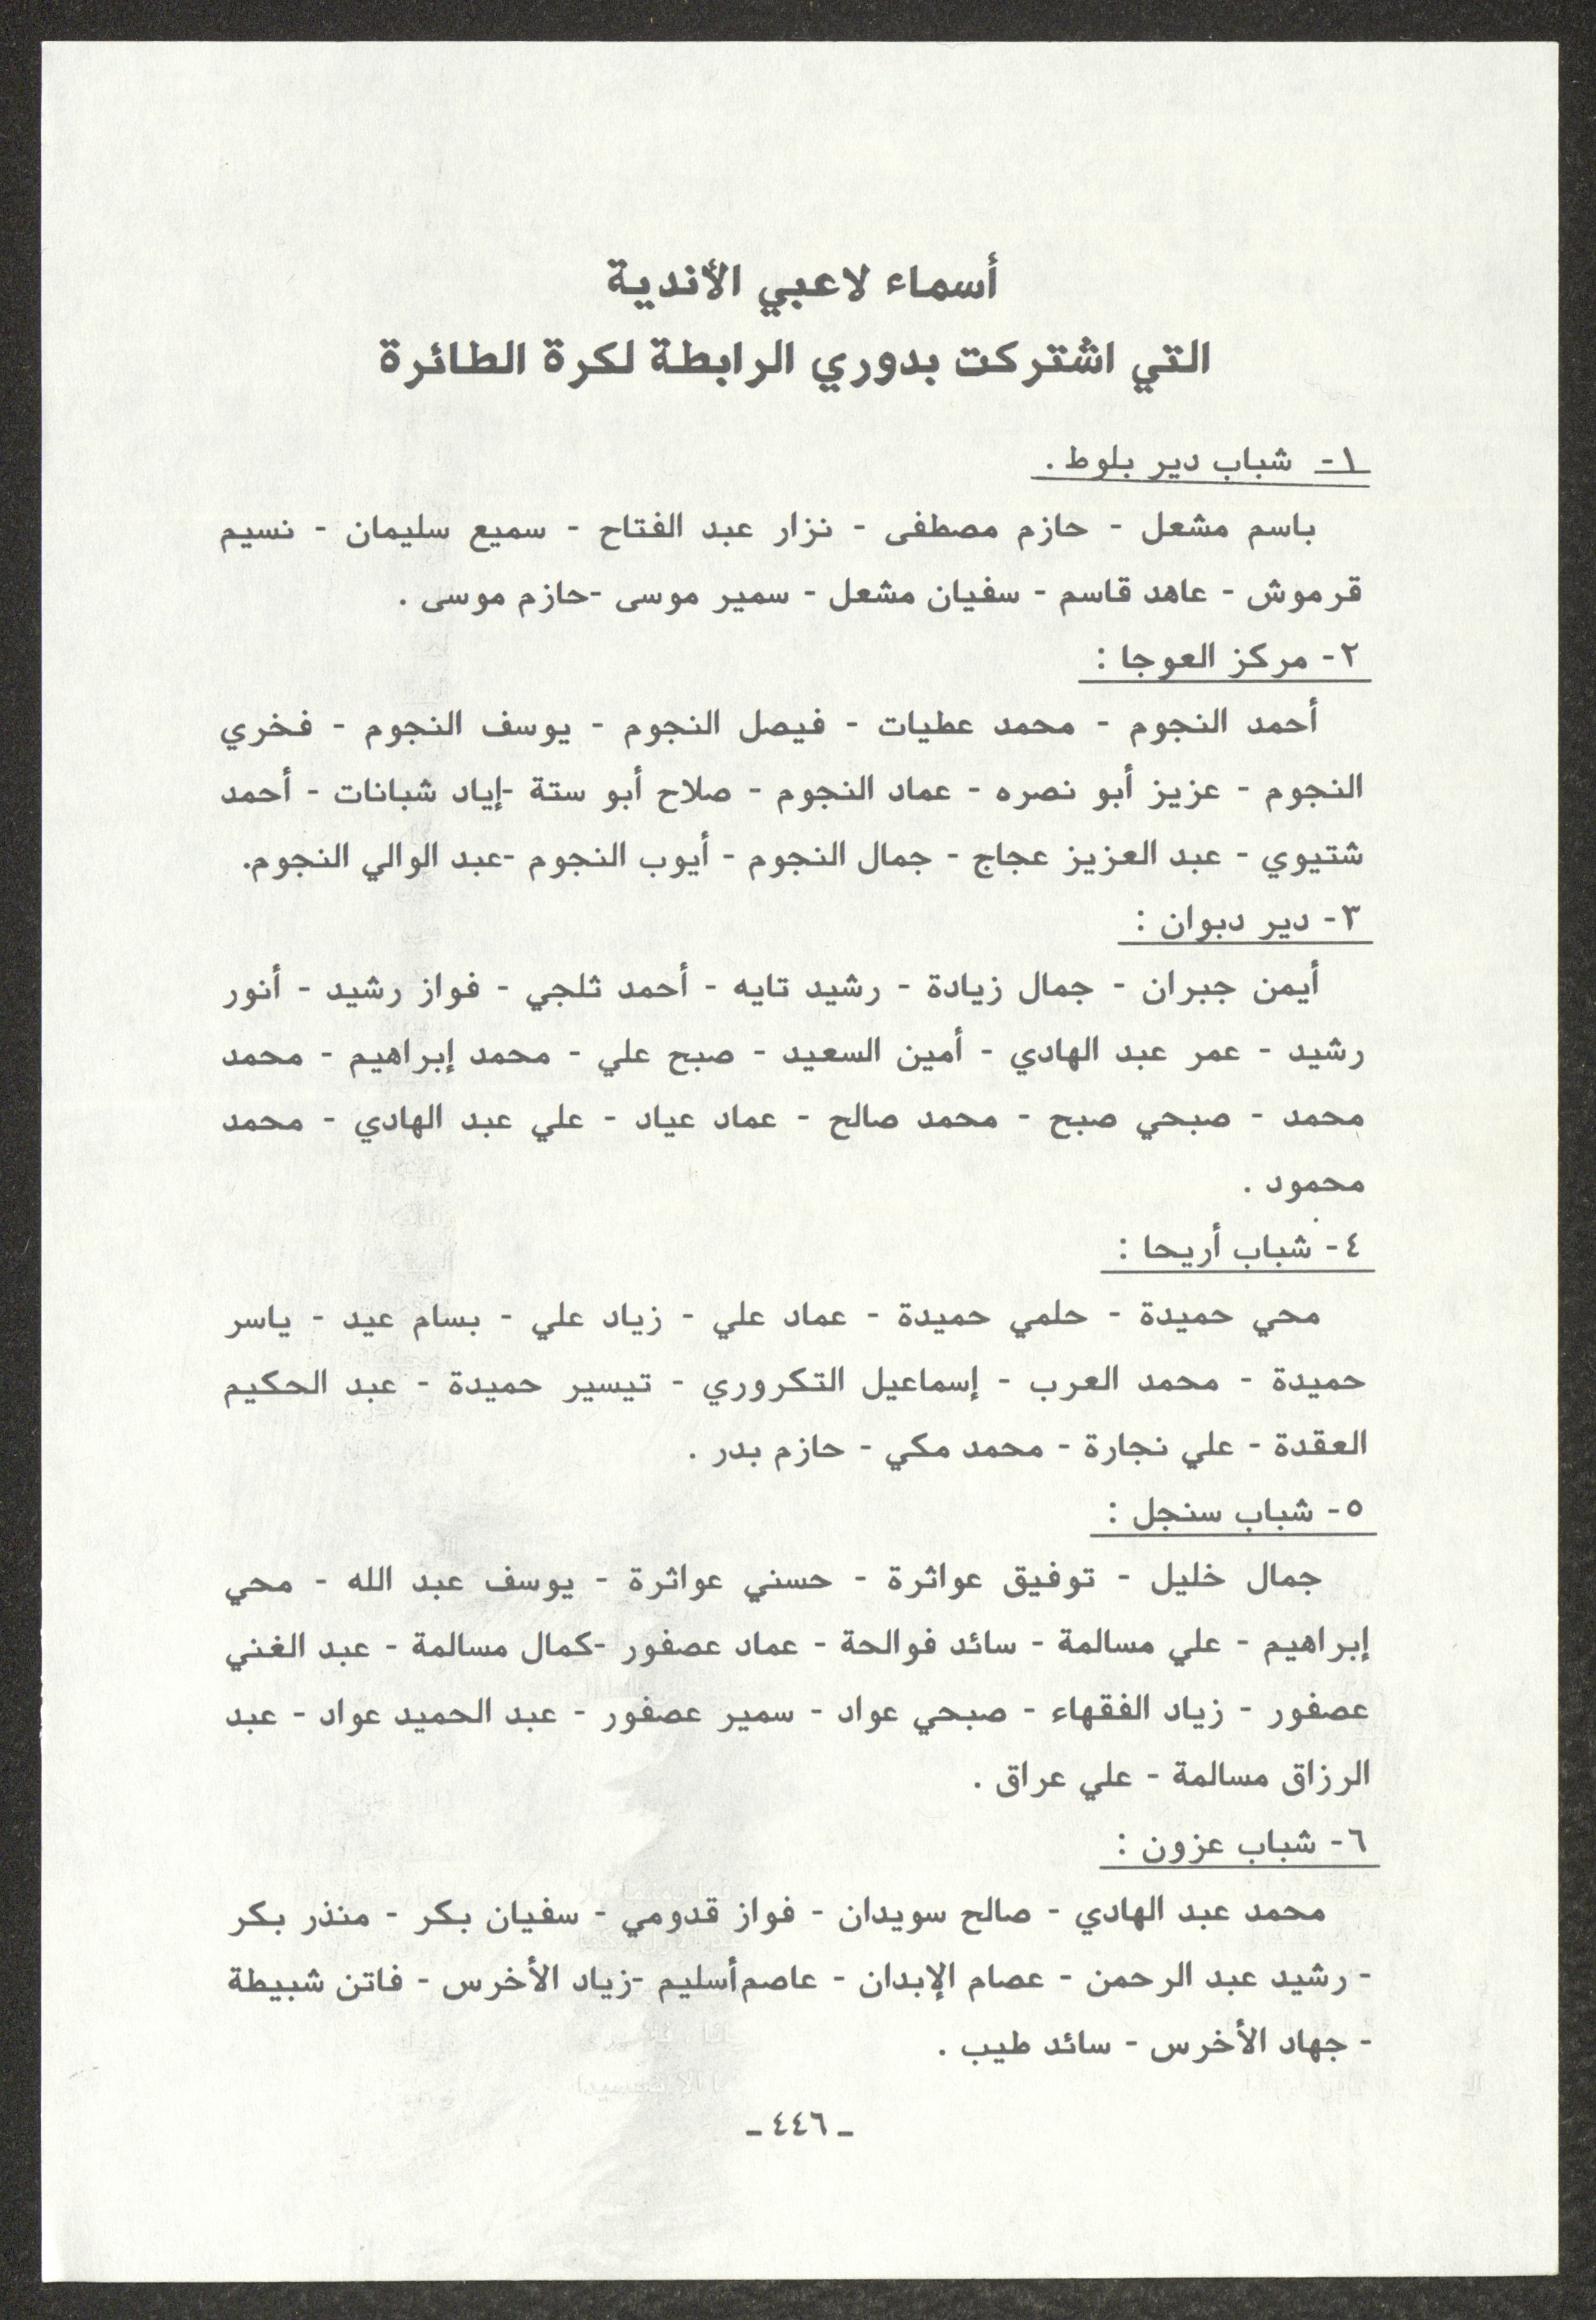 أسماء لاعبي الأندية
التي اشتركت بدوري الرابطة لكرة الطائرة
١- شباب دير بلوط .
باسم مشعل - حازم مصطفى - نزار عبد الفتاح - سميع سليمان - نسيم
قرموش - عاهد قاسم - سفيان مشعل - سمير موسى -حازم موسى .
٢- مركز العوجا :
أحمد النجوم - محمد عطيات - فيصل النجوم - يوسف النجوم - فخري
النجوم - عزيز أبو نصره - عماد النجوم - صلاح أبو ستة -إياد شبانات - أحمد
شتيوي - عبد العزيز عجاج - جمال النجوم - أيوب النجوم -عبد الوالي النجوم.
٣- دير دبوان :
أيمن جبران - جمال زيادة - رشيد تايه - أحمد ثلجي - فواز رشيد - أنور
رشيد - عمر عبد الهادي - أمين السعيد - صبح علي - محمد إبراهيم - محمد
محمد - صبحي صبح - محمد صالح - عماد عياد - علي عبد الهادي - محمد
محمود .
٤- شباب أريحا :
محي حميدة - حلمي حميدة - عماد علي - زياد علي - بسام عيد - ياسر
حميدة - محمد العرب - إسماعيل التكروري - تيسير حميدة - عبد الحكيم
العقدة - علي نجارة - محمد مكي - حازم بدر .
٥- شباب سنجل :
جمال خليل - توفيق عواثرة - حسني عواثرة - يوسف عبد الله - محي
إبراهيم - علي مسالمة - سائد فوالحة - عماد عصفور -كمال مسالمة - عبد الغني
عصفور - زياد الفقهاء - صبحي عواد - سمير عصفور - عبد الحميد عواد - عبد
الرزاق مسالمة - علي عراق .
٦- شباب عزون :
محمد عبد الهادي - صالح سويدان - فواز قدومي - سفيان بكر - منذر بكر
- رشيد عبد الرحمن - عصام الإبدان - عاصم أسليم -زياد الأخرس - فاتن شبيطة
- جهاد الأخرس - سائد طيب .
ـ ٤٤٦ ـ